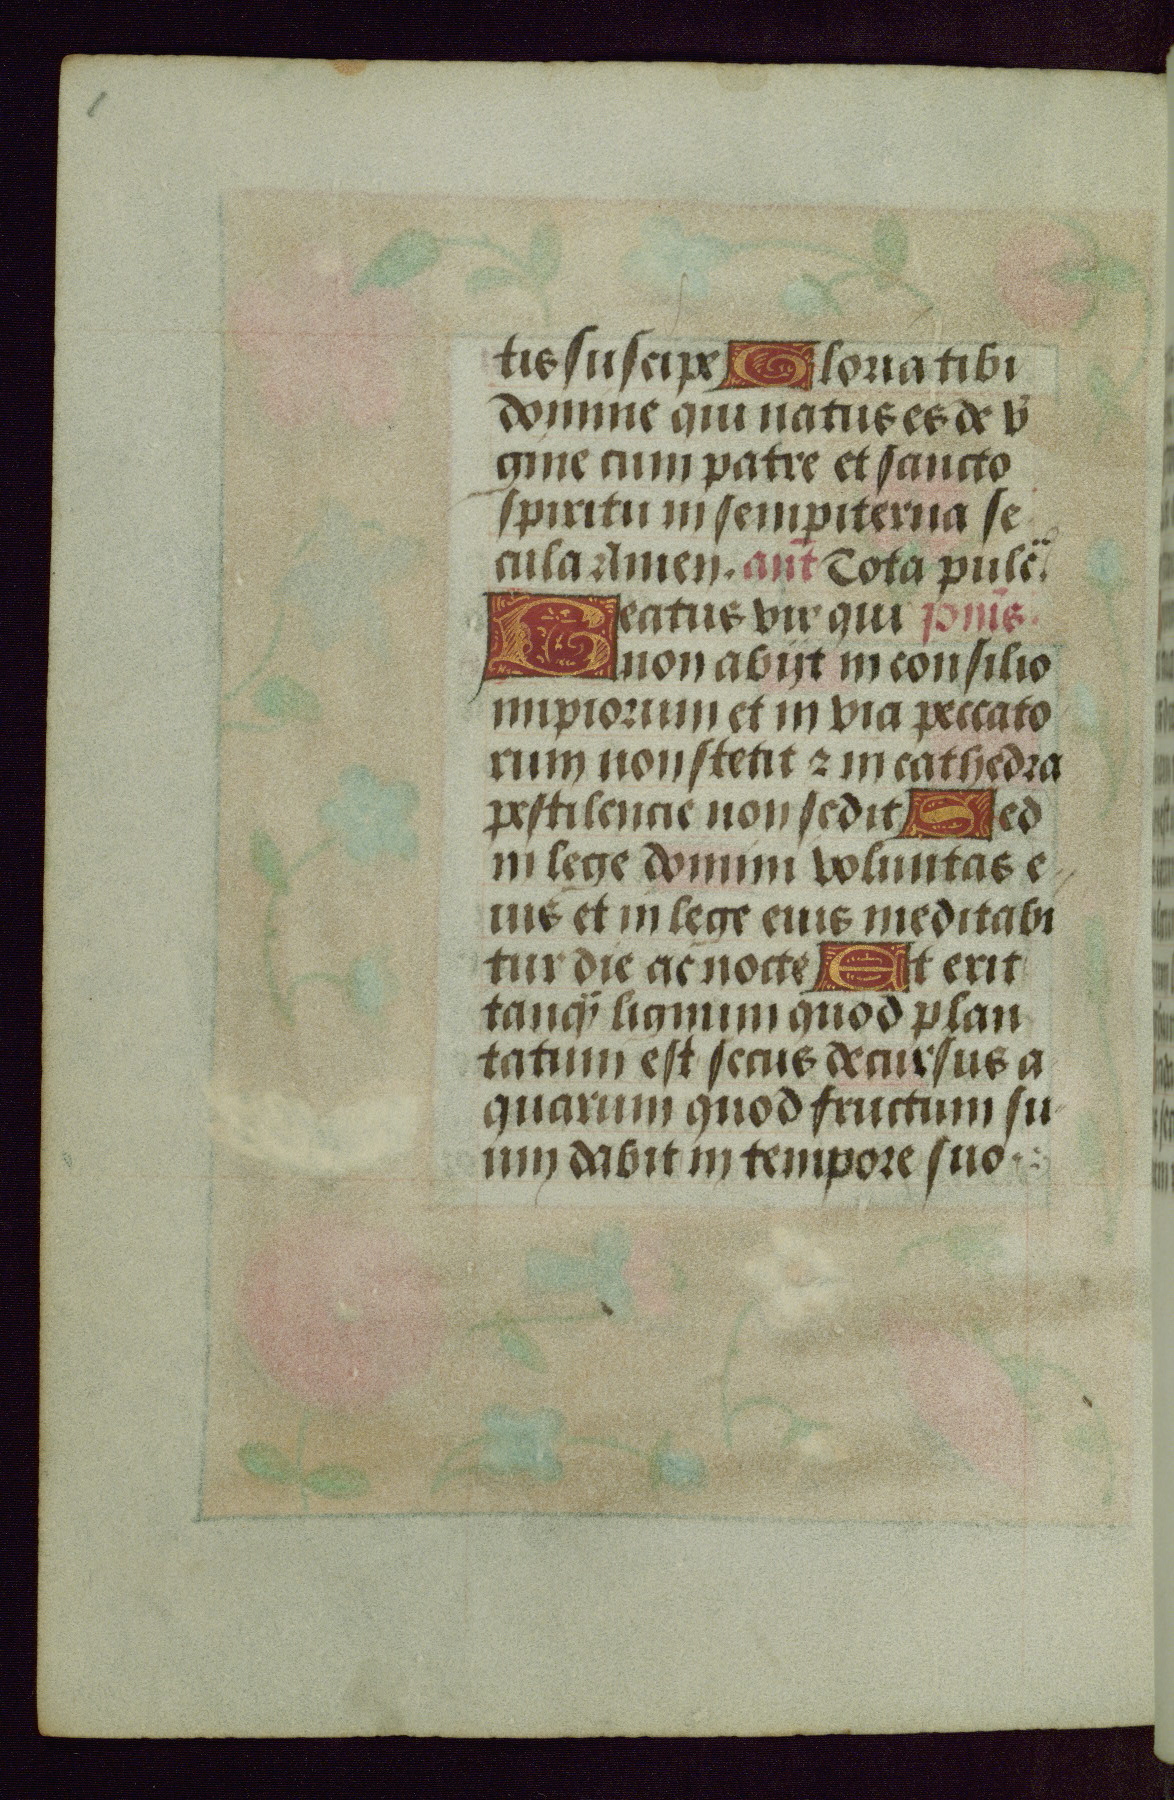 tis suscipe Gloria tibi
domine qui natus es de v̄
gine cum patre et sancto
spiritu in sempiterna se
cula Amen. an̄t Tota pulc̄
Beatus vir qui ps̄mᷤ.
non abijt in consilio
impiorum et in via peccato
rum non stetit ⁊ in cathedra
pestilencie non sedit Sed
in lege domini voluntas e
ius et in lege eius meditabi
tur die ac nocte Et erit
tanq̄ lignum quod plan
tatum est secus decursus a
quarum quod fructum su
um dabit in tempore suo